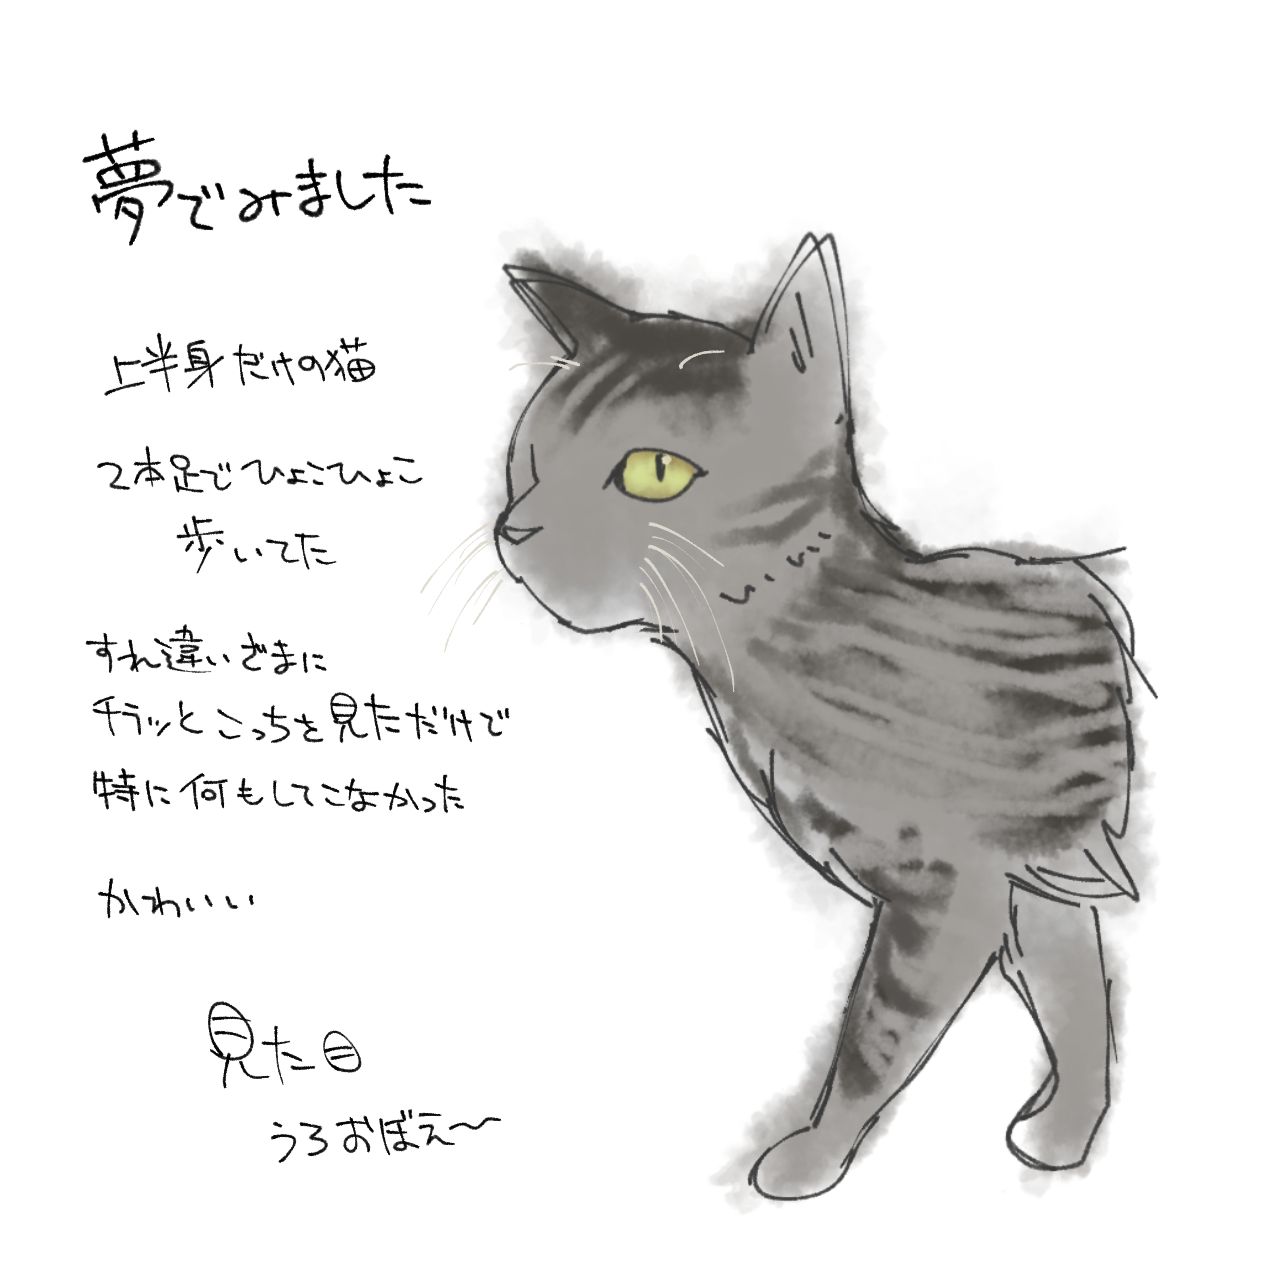 夢でみました
上半身だけの猫
2本足でひょこひょこ
歩いてた
すれ違いざまに
チラッとこっちを見ただけで
特に何もしてこなかった
かわいい
見た目
うろおぼえ〜